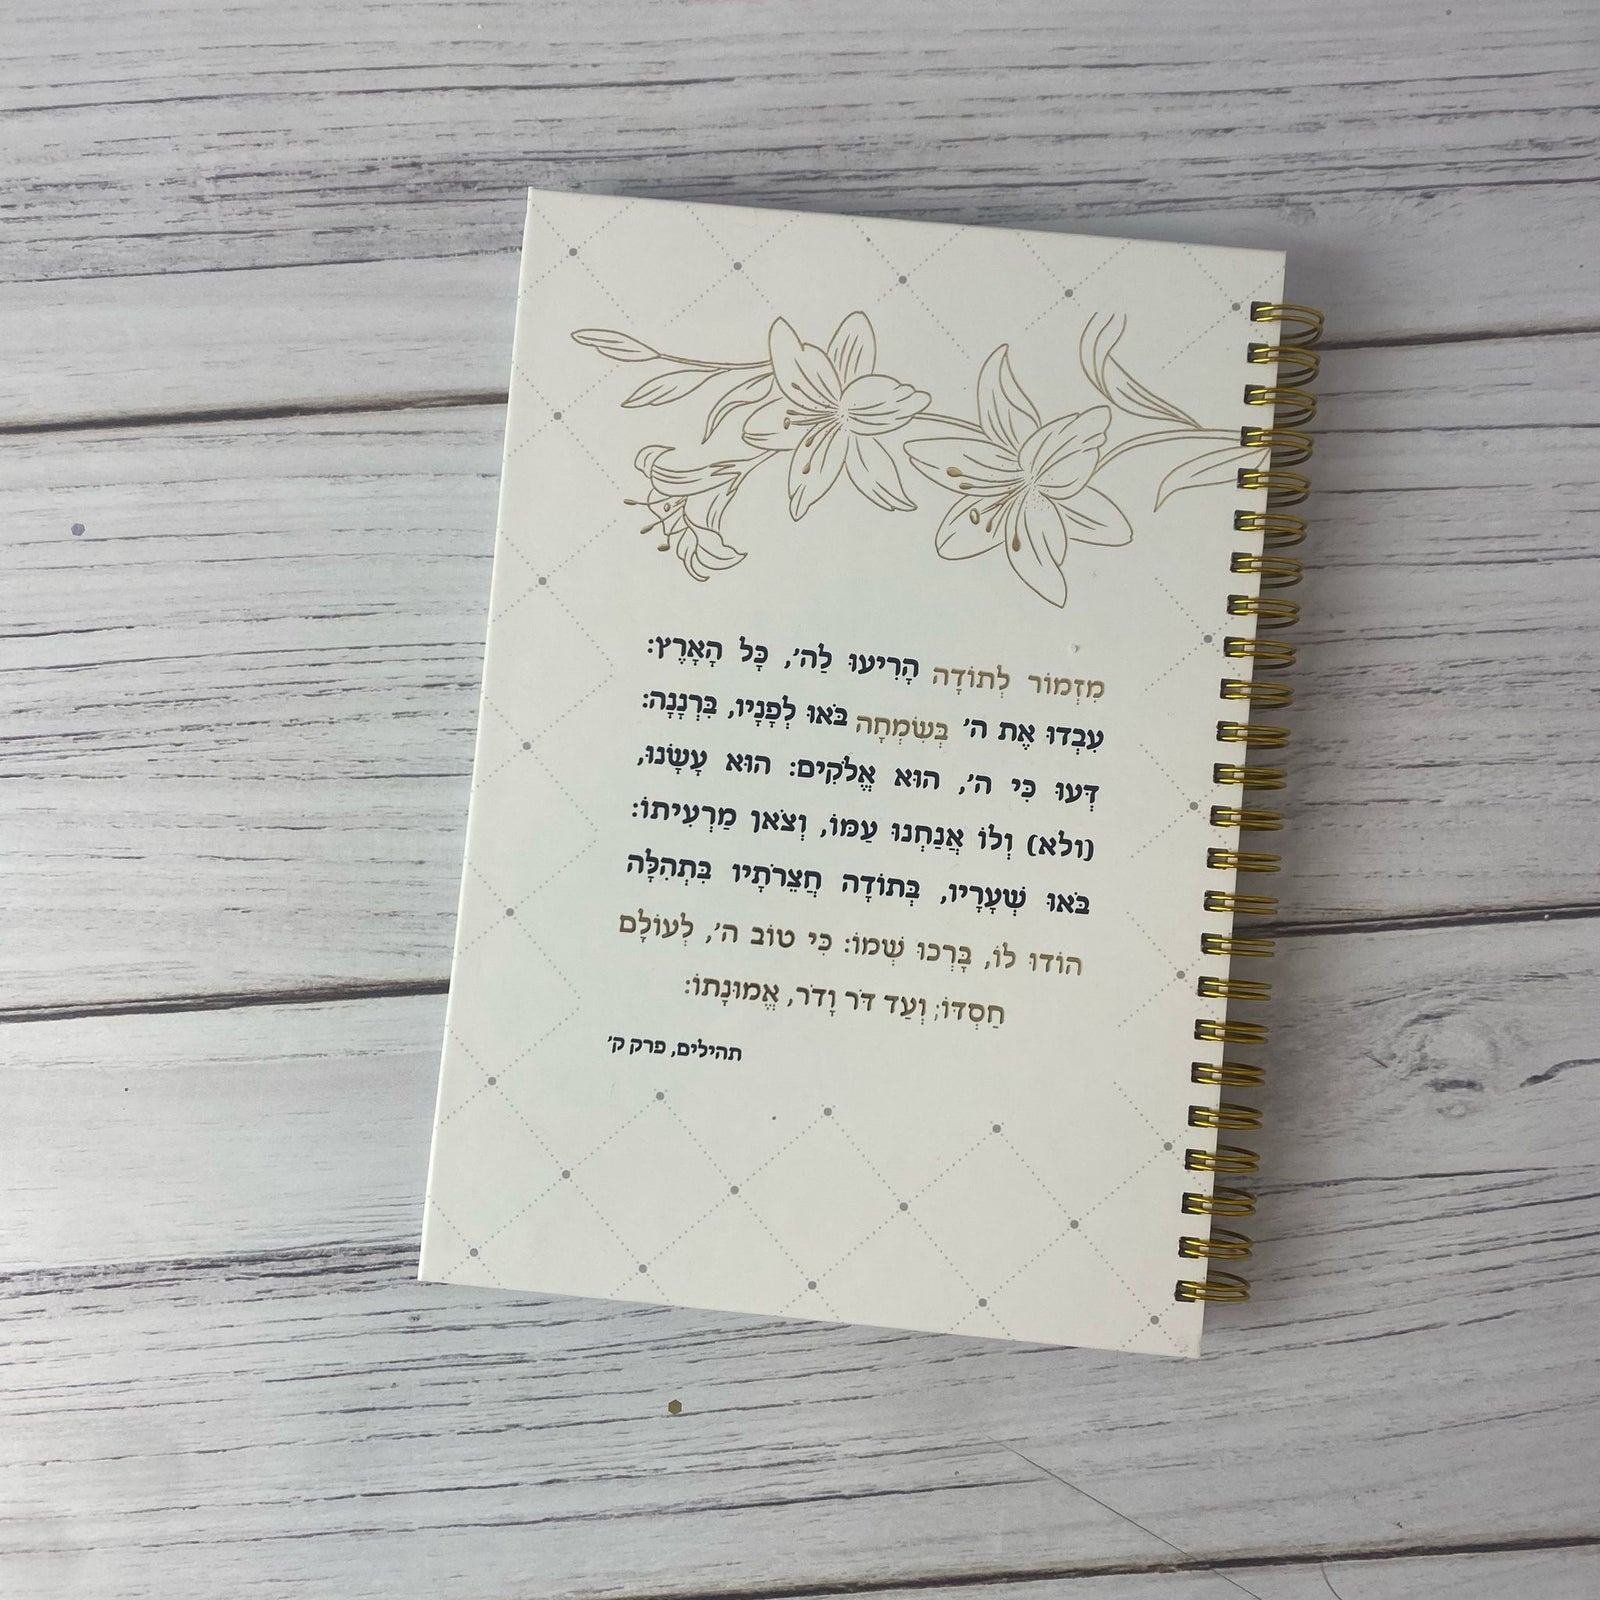 מִזְמוֹר לְתוֹדָה הָרִיעוּ לַה', כָּל הָאָרֶץ:
עִבְדוּ אֶת ה' בְּשִׂמְחָה בֹּאוּ לְפָנָיו, בִּרְנָנָה:
דְּעוּ כִּי ה', הוּא אֱלֹקִים: הוּא עָשָׂנוּ,
(ולא) וְלוֹ אֲנַחְנוּ עַמּוֹ, וְצֹאן מַרְעִיתוֹ:
בֹּאוּ שְׁעָרָיו, בְּתוֹדָה חֲצֵרֹתָיו בִּתְהִלָּה
הוֹדוּ לוֹ, בָּרְכוּ שְׁמוֹ: כִּי טוֹב ה', לְעוֹלָם
חַסְדּוֹ; וְעַד דֹּר וָדֹר, אֱמוּנָתוֹ:
תהילים, פרק ק'